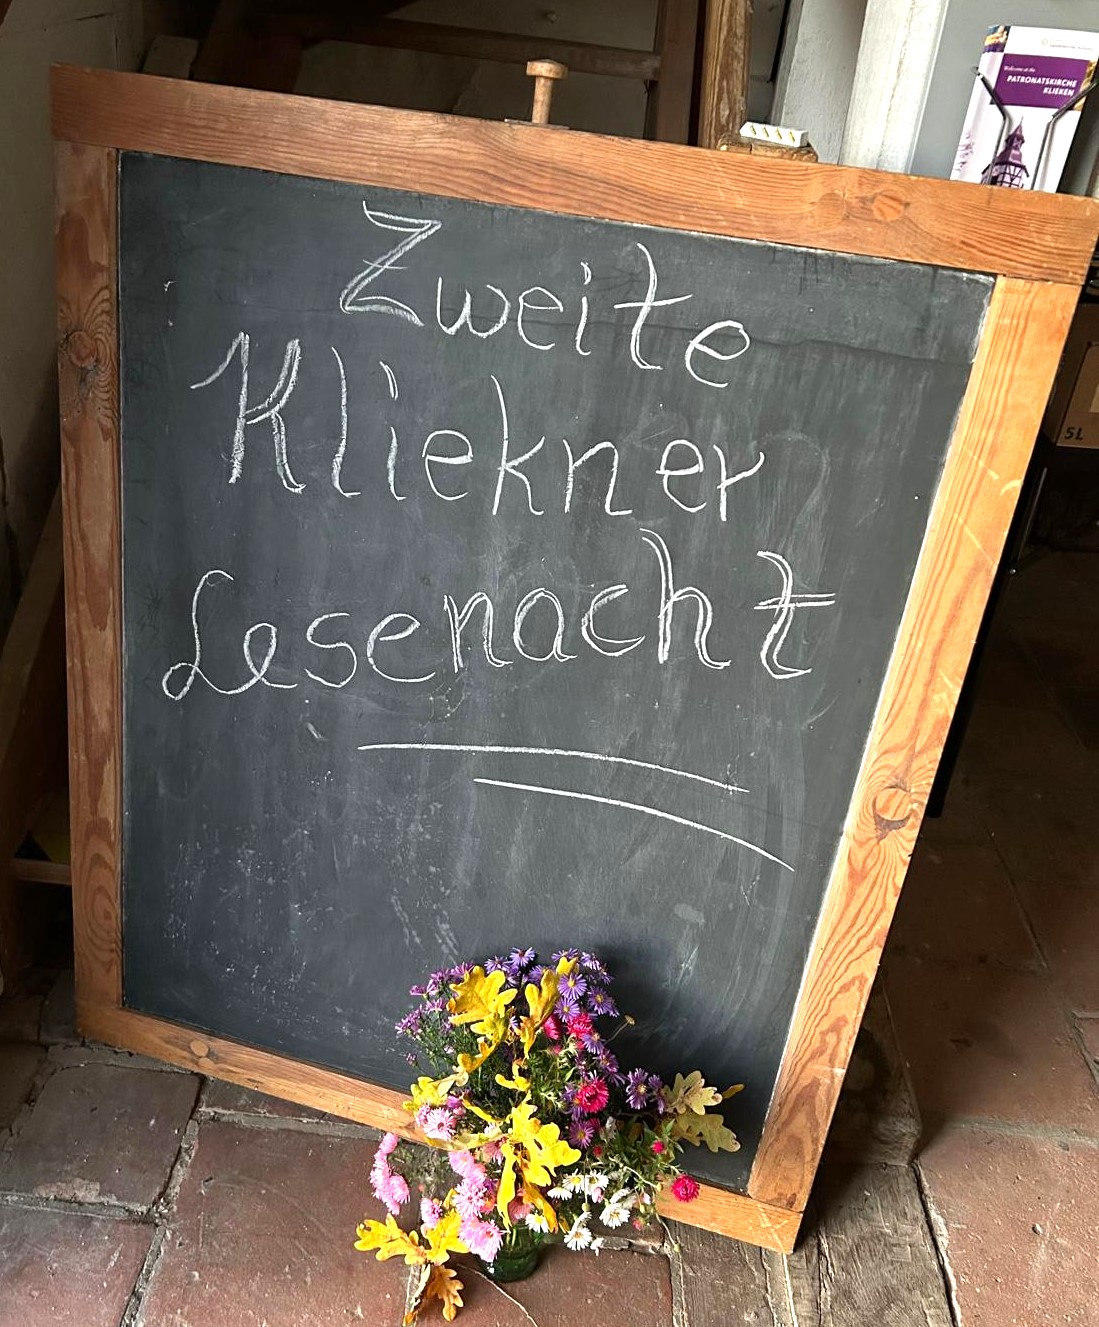 Zweite
Kliekner
Lesenacht
Welcome at the
PATRONATSKIRCHE
KLIEKEN
5L